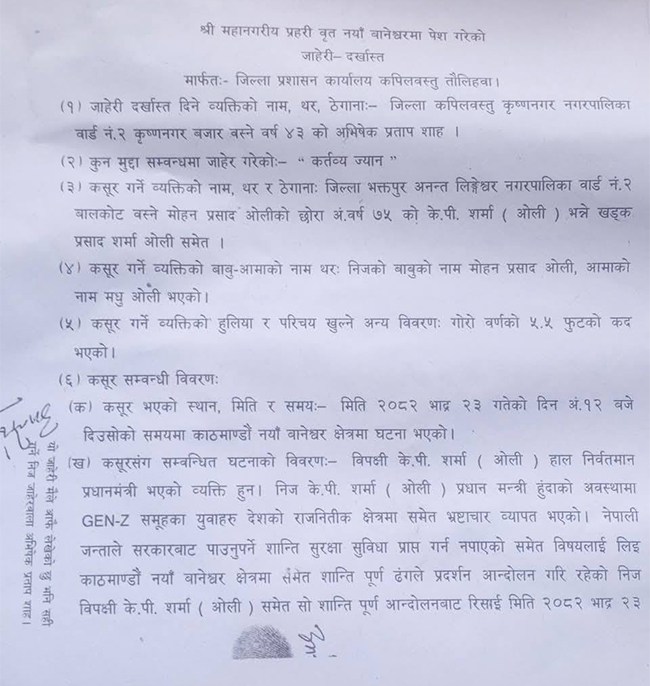 श्री महानगरीय प्रहरी वृत नयाँ वानेश्वरमा पेश गरेको
जाहेरी– दर्खास्त
मार्फतः- जिल्ला प्रशासन कार्यालय कपिलवस्तु तौलिहवा।
(१) जाहेरी दर्खास्त दिने व्यक्तिको नाम, थर, ठेगानाः– जिल्ला कपिलवस्तु कृष्णनगर नगरपालिका
वार्ड नं.२ कृष्णनगर बजार वस्ने वर्ष ४३ को अभिषेक प्रताप शाह ।
(२) कुन मुद्दा सम्वन्धमा जाहेर गरेकोः– “ कर्तव्य ज्यान ”
(३) कसूर गर्ने व्यक्तिको नाम, थर र ठेगानाः जिल्ला भक्तपुर अनन्त लिङ्गेश्वर नगरपालिका वार्ड नं.२
बालकोट वस्ने मोहन प्रसाद ओलीको छोरा अं.वर्ष ७५ को के.पी. शर्मा ( ओली ) भन्ने खड्क
प्रसाद शर्मा ओली समेत ।
(४) कसूर गर्ने व्यक्तिको बाबु-आमाको नाम थरः निजको बाबुको नाम मोहन प्रसाद ओली, आमाको
नाम मधु ओली भएको।
(५) कसूर गर्ने व्यक्तिको हुलिया र परिचय खुल्ने अन्य विवरणः गोरो वर्णको ५.५ फुटको कद
भएको।
(६) कसूर सम्वन्धी विवरणः
(क) कसूर भएको स्थान, मिति र समयः– मिति २०८२ भाद्र २३ गतेको दिन अं.१२ बजे
दिउसोको समयमा काठमाण्डौ नयाँ वानेश्वर क्षेत्रमा घटना भएको।
(ख) कसूरसंग सम्वन्धित घटनाको विवरणः– विपक्षी के.पी. शर्मा ( ओली ) हाल निर्वतमान
प्रधानमंत्री भएको व्यक्ति हुन। निज के.पी. शर्मा ( ओली ) प्रधान मन्त्री हुंदाको अवस्थामा
GEN-Z समूहका युवाहरु देशको राजनितीक क्षेत्रमा समेत भ्रष्टाचार व्यापत भएको। नेपाली
जन्ताले सरकारबाट पाउनुपर्ने शान्ति सुरक्षा सुविधा प्राप्त गर्न नपाएको समेत विषयलाई लिइ
काठमाण्डौ नयाँ वानेश्वर क्षेत्रमा समेत शान्ति पूर्ण ढंगले प्रदर्शन आन्दोलन गरि रहेको निज
विपक्षी के.पी. शर्मा ( ओली ) समेत सो शान्ति पूर्ण आन्दोलनबाट रिसाई मिति २०८२ भाद्र २३
यो जाहेरी मैले आफै लेखेको छु भनि सही
गर्ने निज जाहेरवाला अभिषेक प्रताप शाह।